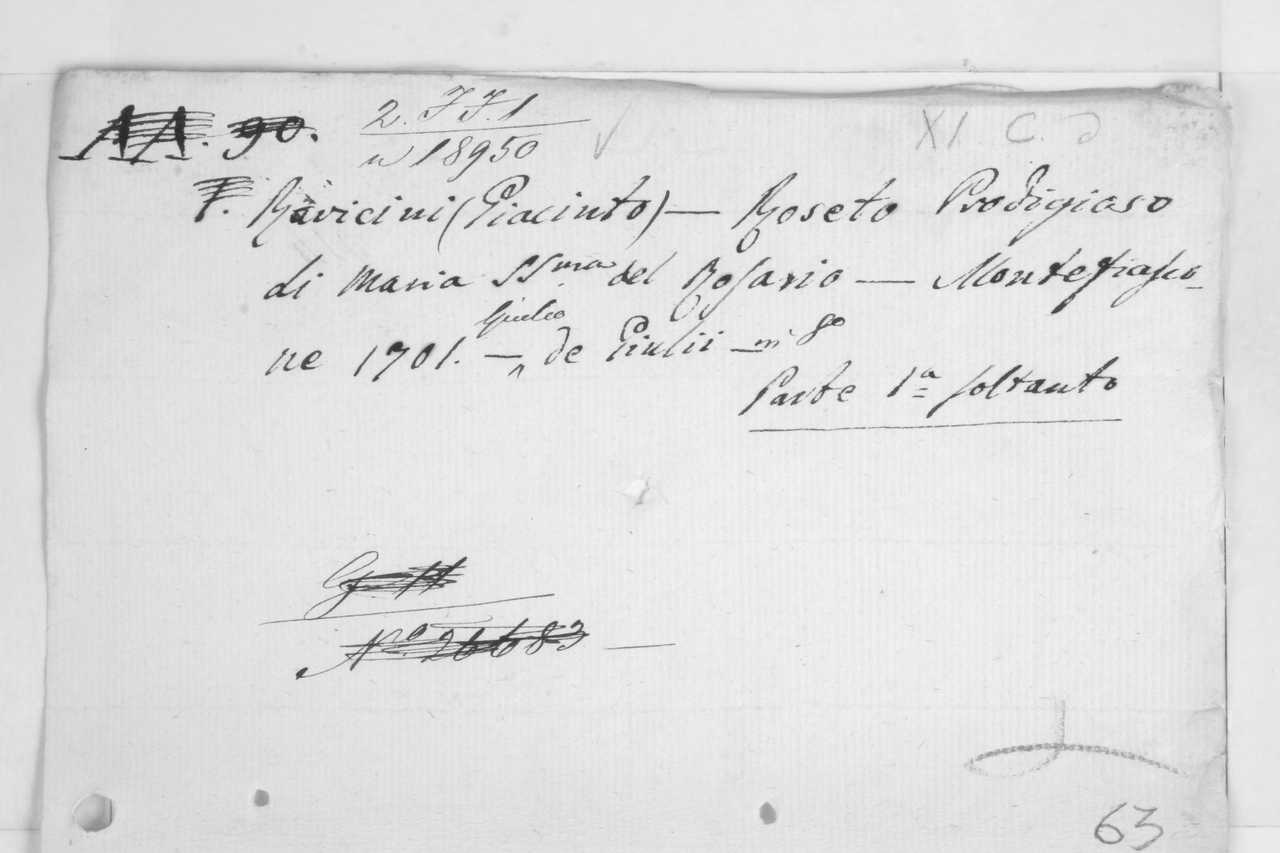 AA. 90.
2. J J. 1
n 18950
XI C. d
F. Ravicini (Giacinto) — Roseto Prodigioso
di Maria SSma del Rosario — Montefiasco-
Giulio
ne 1701. — de Giulii — in 8º
Parte 1ª soltanto
Nº. 26683 —
63